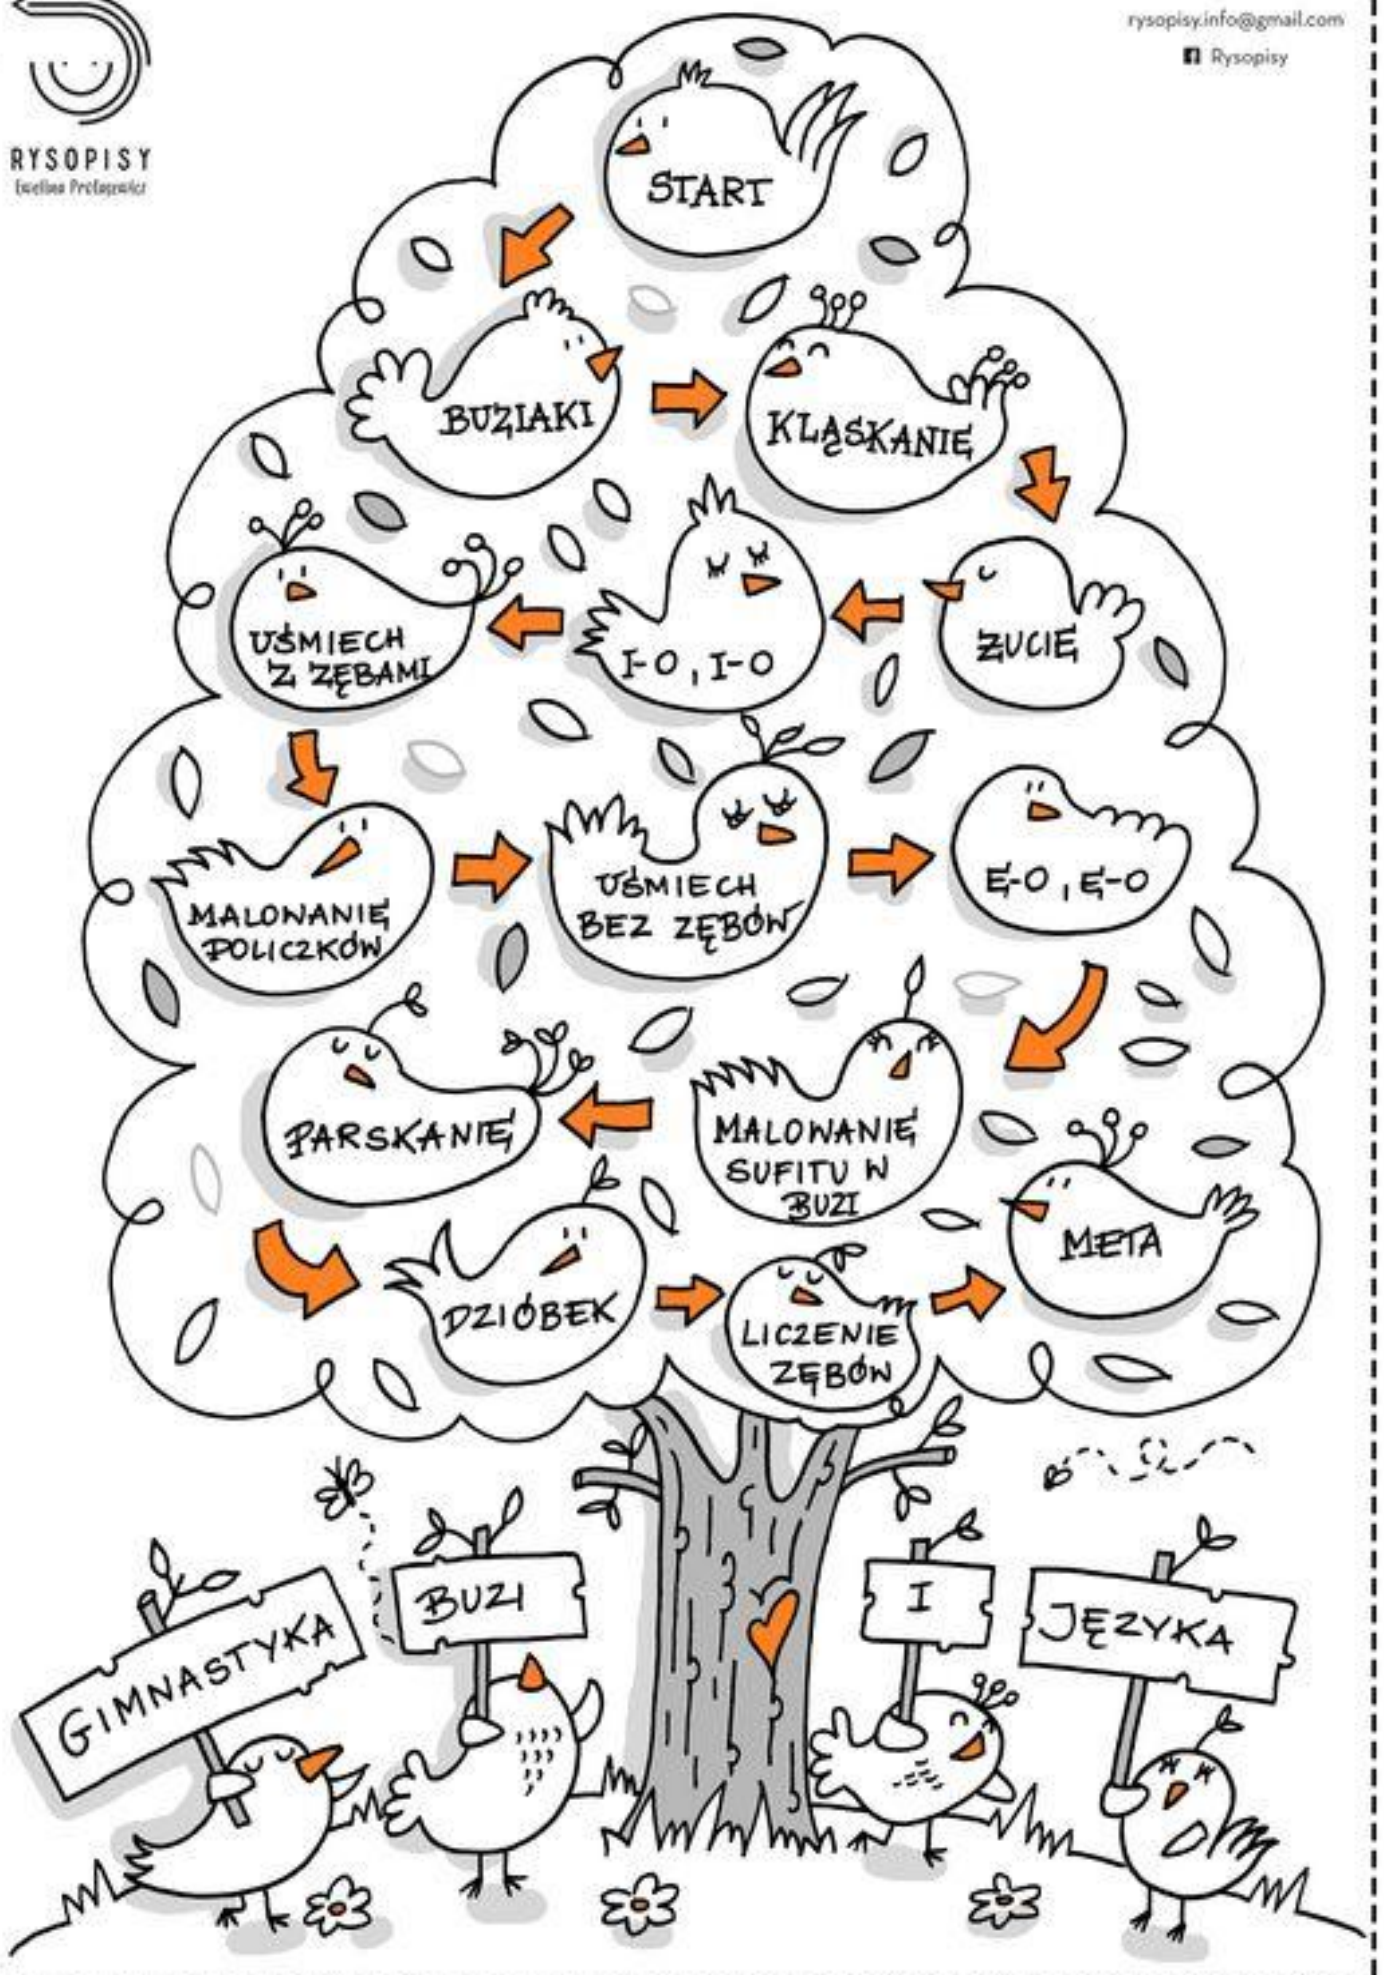 rysopisy.info@gmail.com
Rysopisy
RYSOPISY
START
BUZIAKI
KLĄSKANIE
ŻUCIE
I-O, I-O
UŚMIECH
Z ZĘBAMI
MALOWANIE
POLICZKÓW
UŚMIECH
BEZ ZĘBÓW
E-O, E-O
MALOWANIE
SUFITU W
BUZI
PARSKANIE
DZIÓBEK
LICZENIE
ZĘBÓW
META
GIMNASTYKA
BUZI
I
JĘZYKA